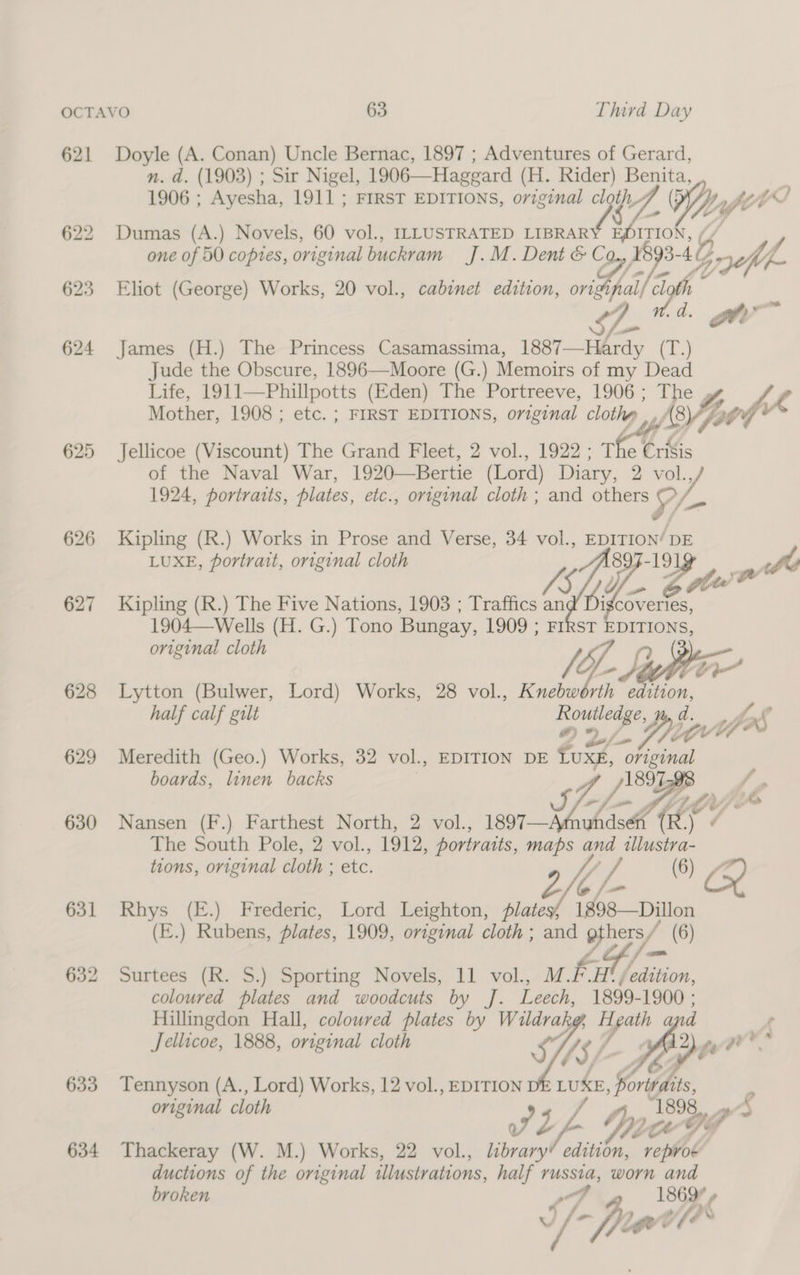 OCTAVO 63 Third Day
621 Doyle (A. Conan) Uncle Bernac, 1897 ; Adventures of Gerard,
n. d. (1903) ; Sir Nigel, 1906—Haggard (H. Rider) Benita,
1906 ; Ayesha, 1911 ; FIRST EDITIONS, original cloth
622 Dumas (A.) Novels, 60 vol., ILLUSTRATED LIBRARY EDITION,
one of 50 copies, original buckram J. M. Dent & Co., 1893-4
623 Eliot (George) Works, 20 vol., cabinet edition, original cloth
n. d.
624 James (H.) The Princess Casamassima, 1887—Hardy (T.)
Jude the Obscure, 1896—Moore (G.) Memoirs of my Dead
Life, 1911—Phillpotts (Eden) The Portreeve, 1906 ; The
Mother, 1908 ; etc. ; FIRST EDITIONS, original cloth (8)
625 Jellicoe (Viscount) The Grand Fleet, 2 vol., 1922 ; The Crisis
of the Naval War, 1920—Bertie (Lord) Diary, 2 vol.,
1924, portraits, plates, etc., original cloth ; and others
626 Kipling (R.) Works in Prose and Verse, 34 vol., EDITION DE
LUXE, portrait, original cloth 1897-1919
627 Kipling (R.) The Five Nations, 1903 ; Traffics and Discoveries,
1904—Wells (H. G.) Tono Bungay, 1909 ; FIRST EDITIONS,
original cloth (3)
628 Lytton (Bulwer, Lord) Works, 28 vol., Knebworth edition,
half calf gilt Routledge, n. d.
629 Meredith (Geo.) Works, 32 vol., EDITION DE LUXE, original
boards, linen backs 1897-98
630 Nansen (F.) Farthest North, 2 vol., 1897—Amundsen (R.)
The South Pole, 2 vol., 1912, portraits, maps and illustra-
tions, original cloth ; etc. (6)
631 Rhys (E.) Frederic, Lord Leighton, plates, 1898—Dillon
(E.) Rubens, plates, 1909, original cloth ; and others (6)
632 Surtees (R. S.) Sporting Novels, 11 vol., M.F.H. edition,
coloured plates and woodcuts by J. Leech, 1899-1900 ;
Hillingdon Hall, coloured plates by Wildrake, Heath and
Jellicoe, 1888, original cloth (12)
633 Tennyson (A., Lord) Works, 12 vol., EDITION DE LUXE, portraits,
original cloth 1898
634 Thackeray (W. M.) Works, 22 vol., library edition, repro-
ductions of the original illustrations, half russia, worn and
broken 1869